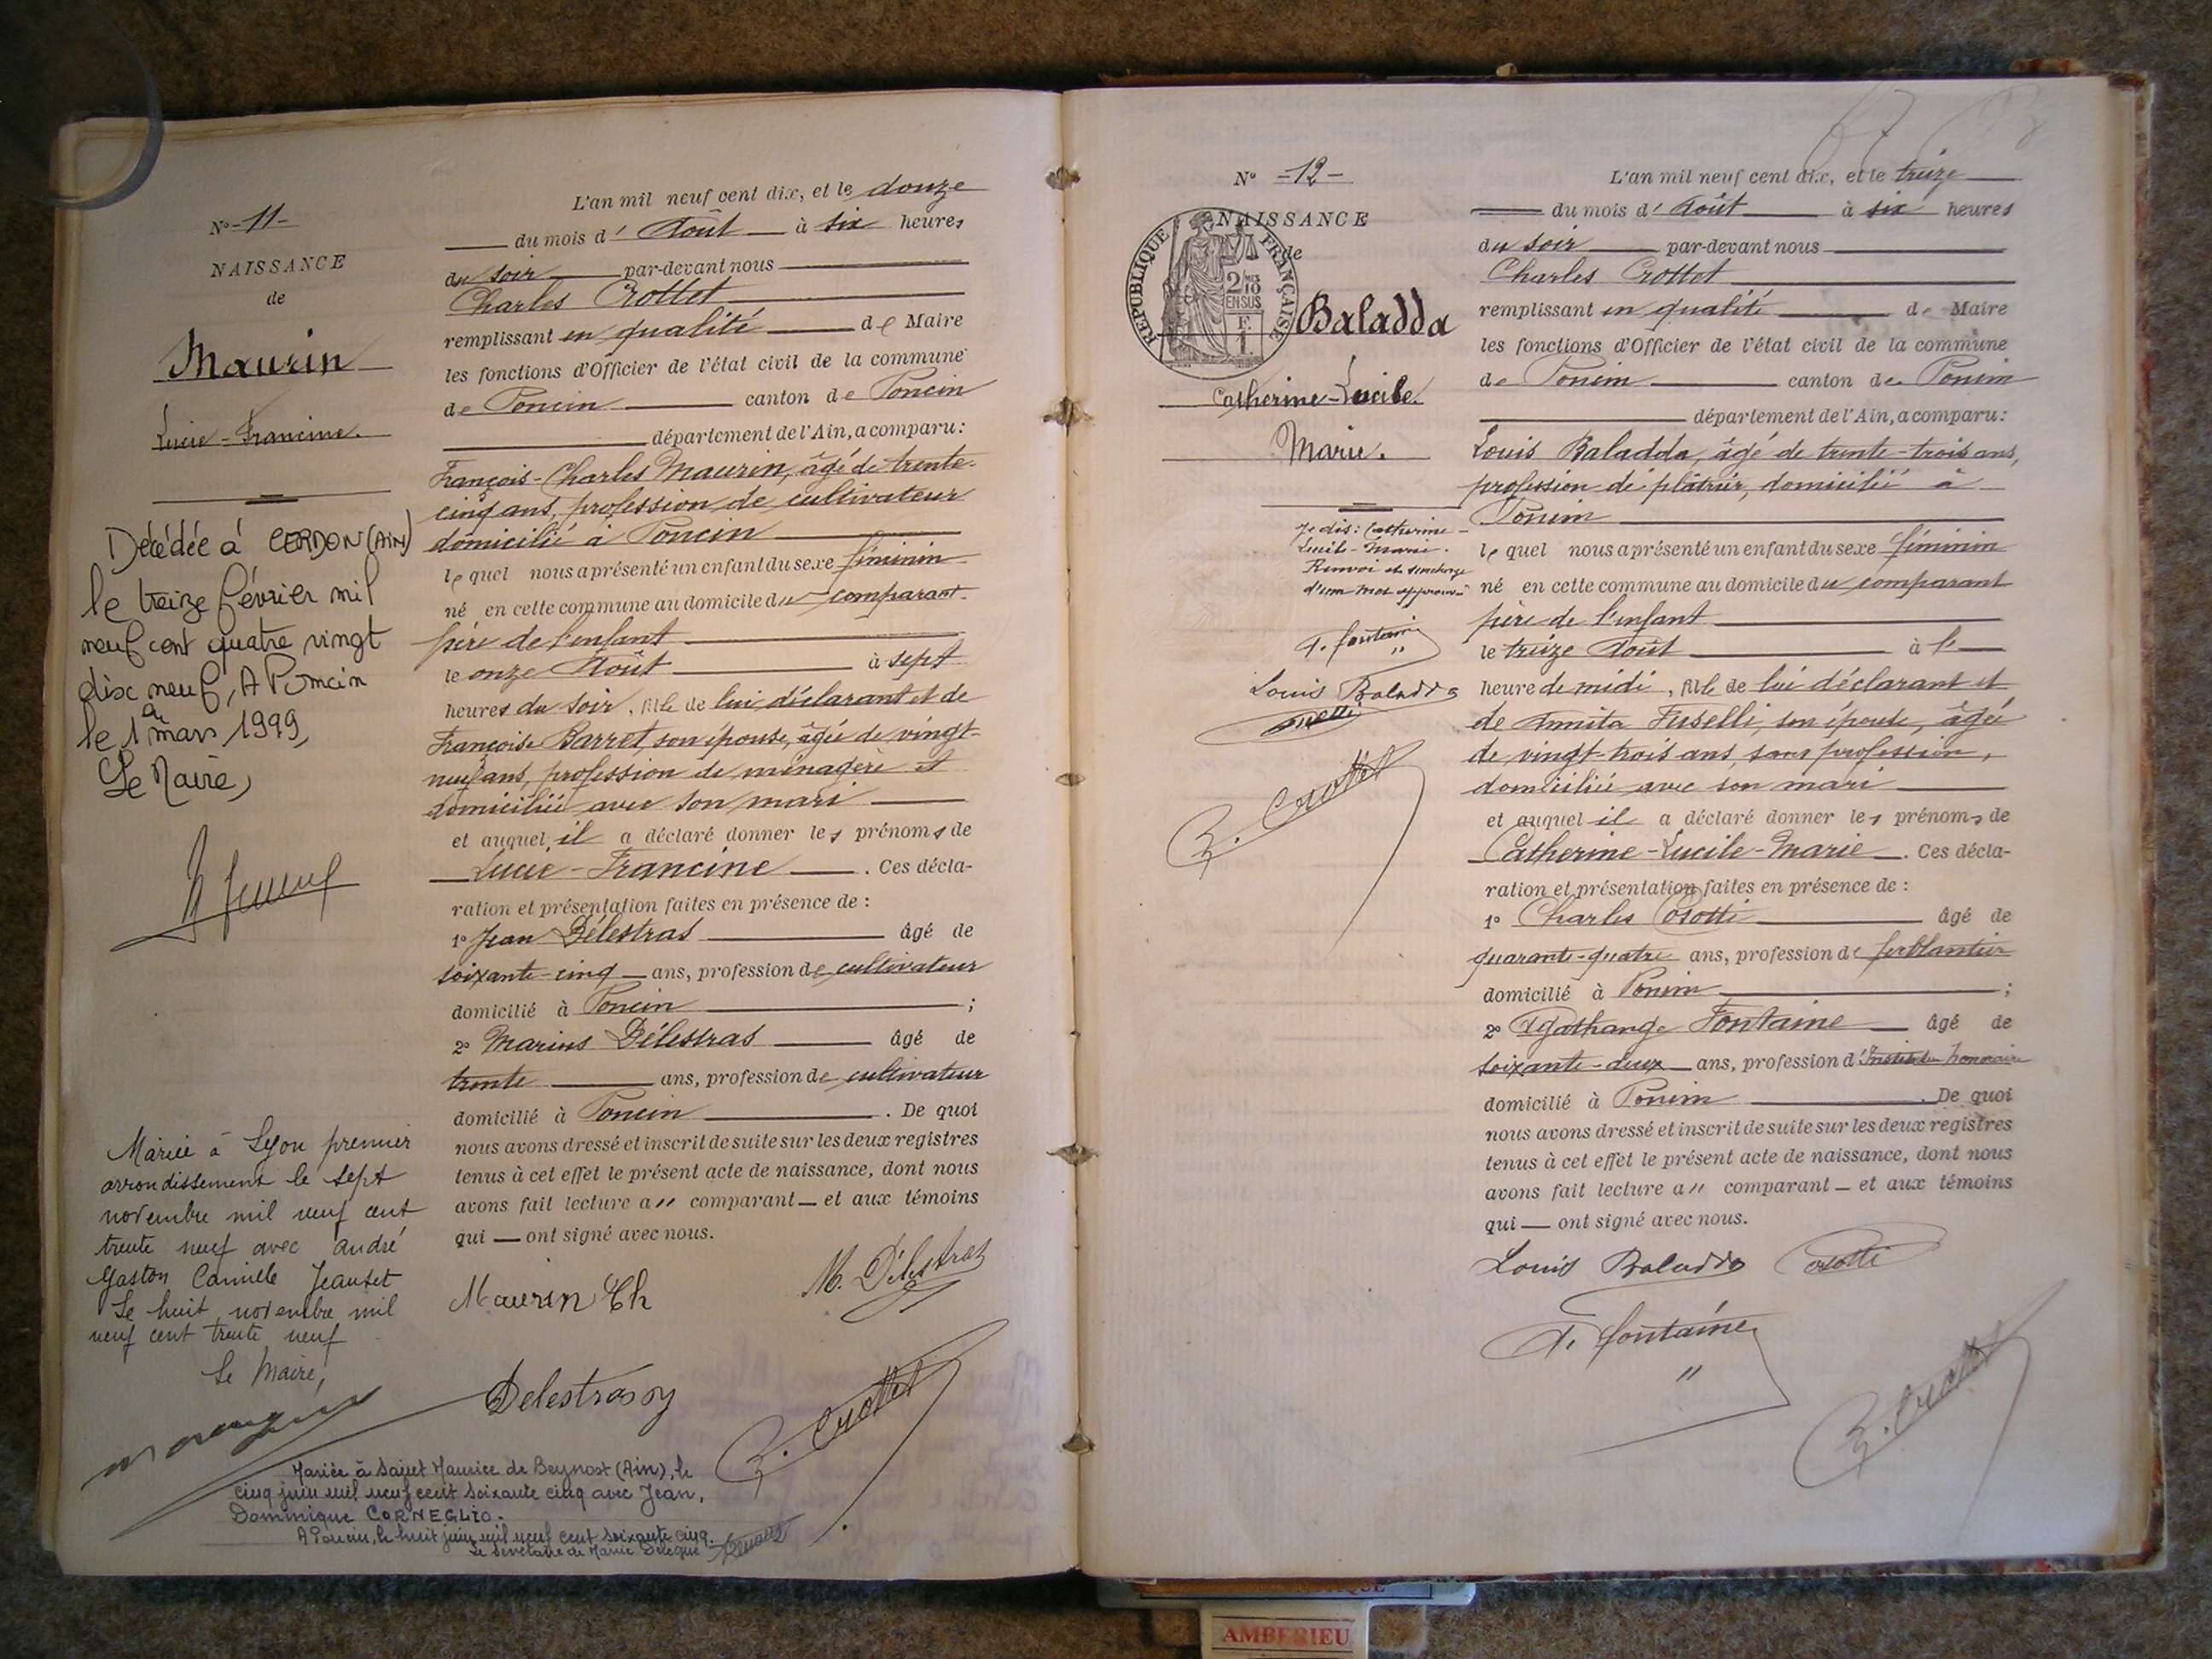 N° - 11 -
NAISSANCE
de
Maurin
Lucie - Francine.
Décédée à CERDON (AIN)
le treize février mil
neuf cent quatre vingt
dix neuf, A Poncin
le 1er mars 1999,
Le Maire,
Mariée à Lyon premier
arrondissement le sept
novembre mil neuf cent
trente neuf avec André
Gaston Camille Jeantet
Le huit novembre mil
neuf cent trente neuf
Le Maire,
L'an mil neuf cent dix, et le douze
du mois d' Août à six heures
du soir par-devant nous
Charles Crottet
remplissant en qualité de Maire
les fonctions d'Officier de l'état civil de la commune
de Poncin canton de Poncin
département de l'Ain, a comparu:
François-Charles Maurin, âgé de trente-
cinq ans, profession de cultivateur
domicilié à Poncin
le quel nous a présenté un enfant du sexe féminin
né en cette commune au domicile du comparant
père de l'enfant
le onze Août à sept
heures du soir, fille de lui déclarant et de
Françoise Barret, son épouse, âgée de vingt-
neuf ans, profession de ménagère et
domiciliée avec son mari
et auquel il a déclaré donner les prénoms de
Lucie - Francine. Ces décla-
ration et présentation faites en présence de :
1° Jean Délestras âgé de
soixante-cinq ans, profession de cultivateur
domicilié à Poncin ;
2° Marius Délestras âgé de
trente ans, profession de cultivateur
domicilié à Poncin. De quoi
nous avons dressé et inscrit de suite sur les deux registres
tenus à cet effet le présent acte de naissance, dont nous
avons fait lecture a" comparant — et aux témoins
qui — ont signé avec nous.
Maurin Ch
M. Délestras
Delestras
C. Crottet
Mariée à Saint Maurice de Beynost (Ain), le
cinq juin mil neuf cent soixante cinq avec Jean,
Dominique CORNEGLIO.
A Poncin, le huit juin mil neuf cent soixante cinq.
Le Secrétaire de Mairie Délégué
N° - 12 -
NAISSANCE
de
RÉPUBLIQUE FRANÇAISE
2/10
EN SUS
Baladda
Catherine-Lucile
Marie.
Je dis: Catherine -
Lucile - Marie.
Renvoi et surcharge
d'un mot approuvés
A. fontaine
Louis Baladda
Osotti
C. Crottet
L'an mil neuf cent dix, et le treize
du mois d' Août à six heures
du soir par-devant nous
Charles Crottet
remplissant en qualité de Maire
les fonctions d'Officier de l'état civil de la commune
de Poncin canton de Poncin
département de l'Ain, a comparu:
Louis Baladda, âgé de trente-trois ans,
profession de plâtrier, domicilié à
Poncin
le quel nous a présenté un enfant du sexe féminin
né en cette commune au domicile du comparant
père de l'enfant
le treize Août à l'
heure de midi, fille de lui déclarant et
de Annita Fuselli, son épouse, âgée
de vingt-trois ans, sans profession,
domiciliée avec son mari
et auquel il a déclaré donner les prénoms de
Catherine-Lucile-Marie. Ces décla-
ration et présentation faites en présence de :
1° Charles Osotti âgé de
quarante-quatre ans, profession de ferblantier
domicilié à Poncin ;
2° Agathange Fontaine âgé de
soixante-deux ans, profession d'Instituteur honoraire
domicilié à Poncin. De quoi
nous avons dressé et inscrit de suite sur les deux registres
tenus à cet effet le présent acte de naissance, dont nous
avons fait lecture a" comparant — et aux témoins
qui — ont signé avec nous.
Louis Baladda
Osotti
A. fontaine
C. Crottet
AMBERIEU